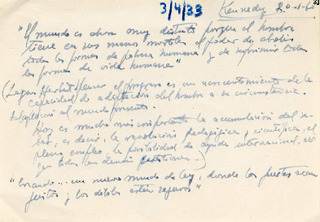 3/4/33
Kennedy 20-1-61
"El mundo es ahora muy distinto porque el hombre
tiene en sus manos mortales el poder de abolir
todas las formas de pobreza humana y de suprimir todas
las formas de vida humana"
capacidad de adaptación del hombre a su circunstancia.
al mundo presente.
Hoy es mucho más importante la acumulación del sa-
ber, es decir, la revolución pedagógica y científica, el
pleno empleo, la posibilidad de ayuda internacional,
que todas las demás cuestiones.)
"Creando... un nuevo mundo de ley, donde los fuertes sean
justos, y los débiles estén seguros"